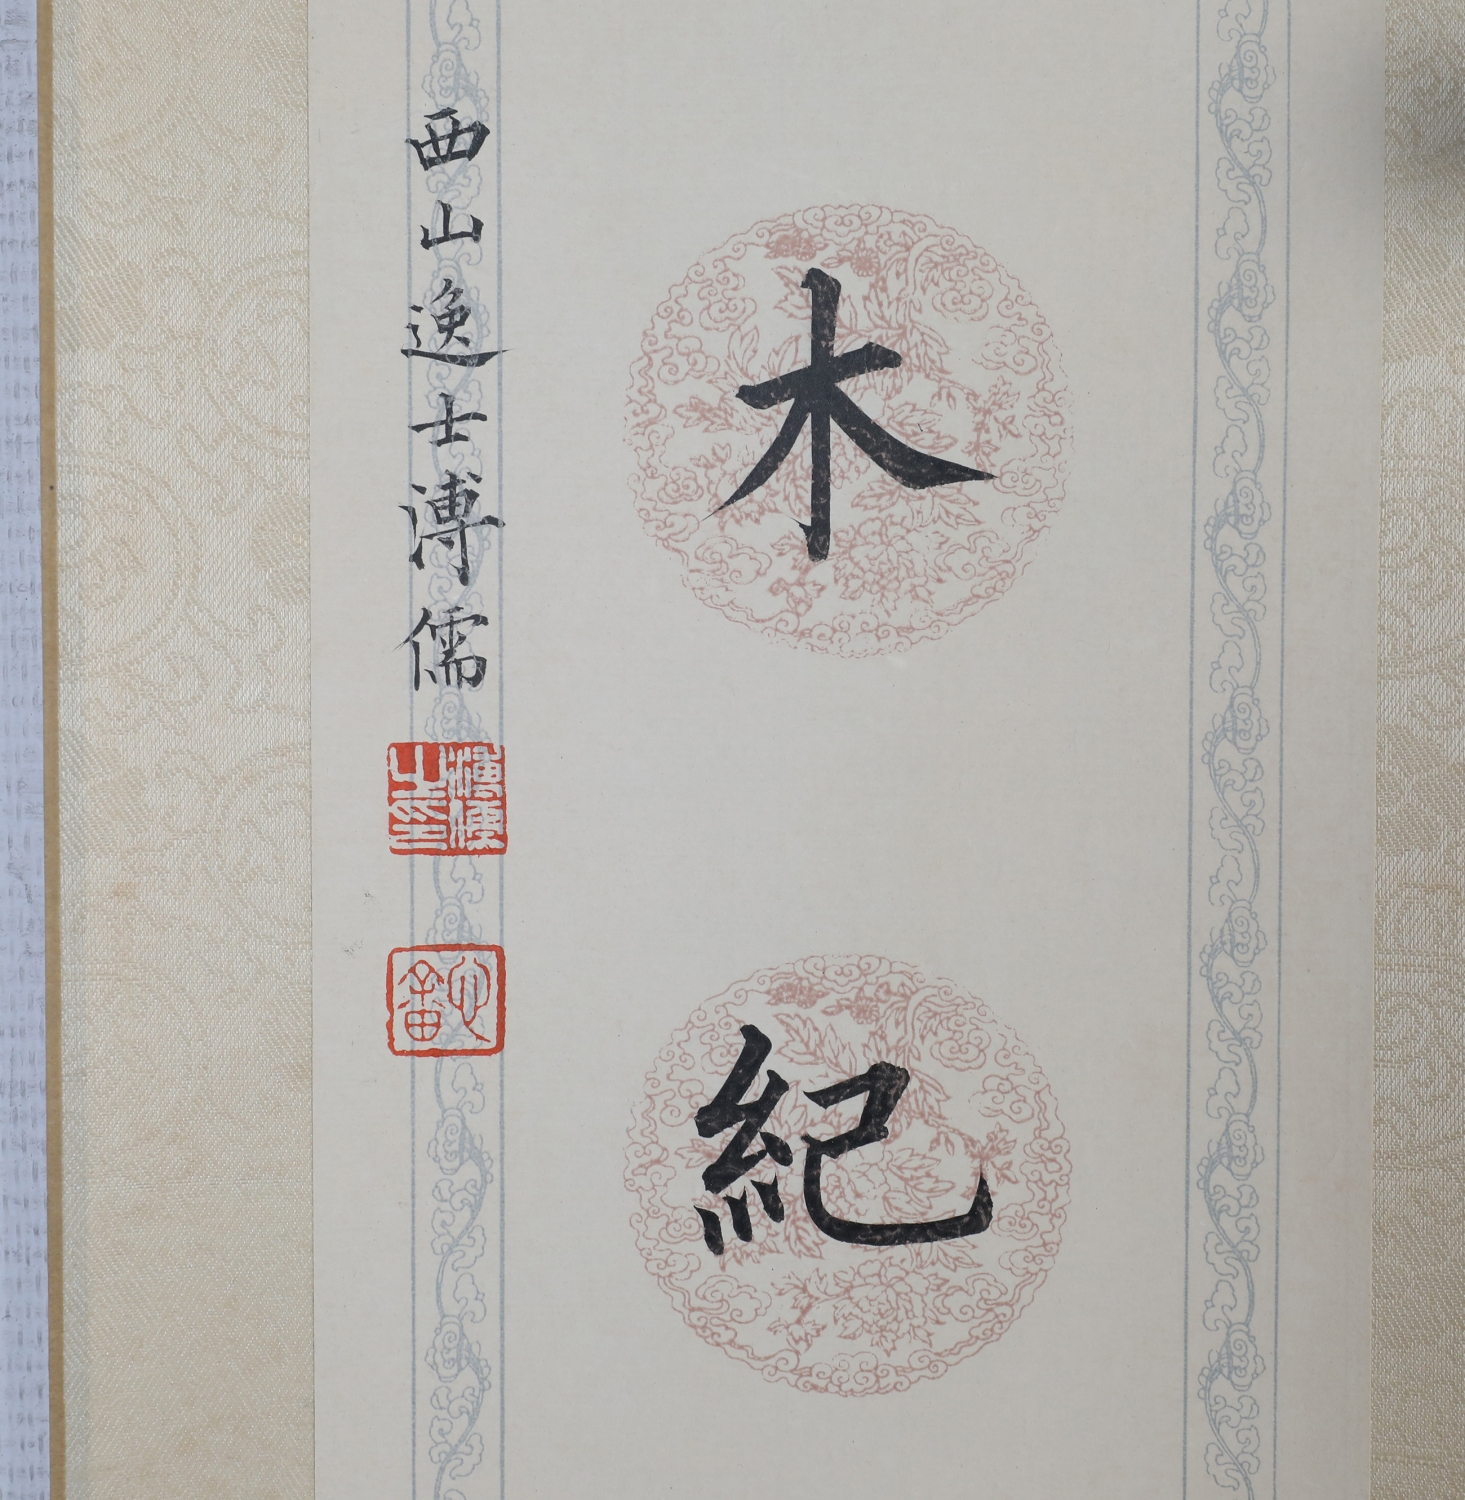 木紀
西山逸士溥儒
溥儒之印
心畬